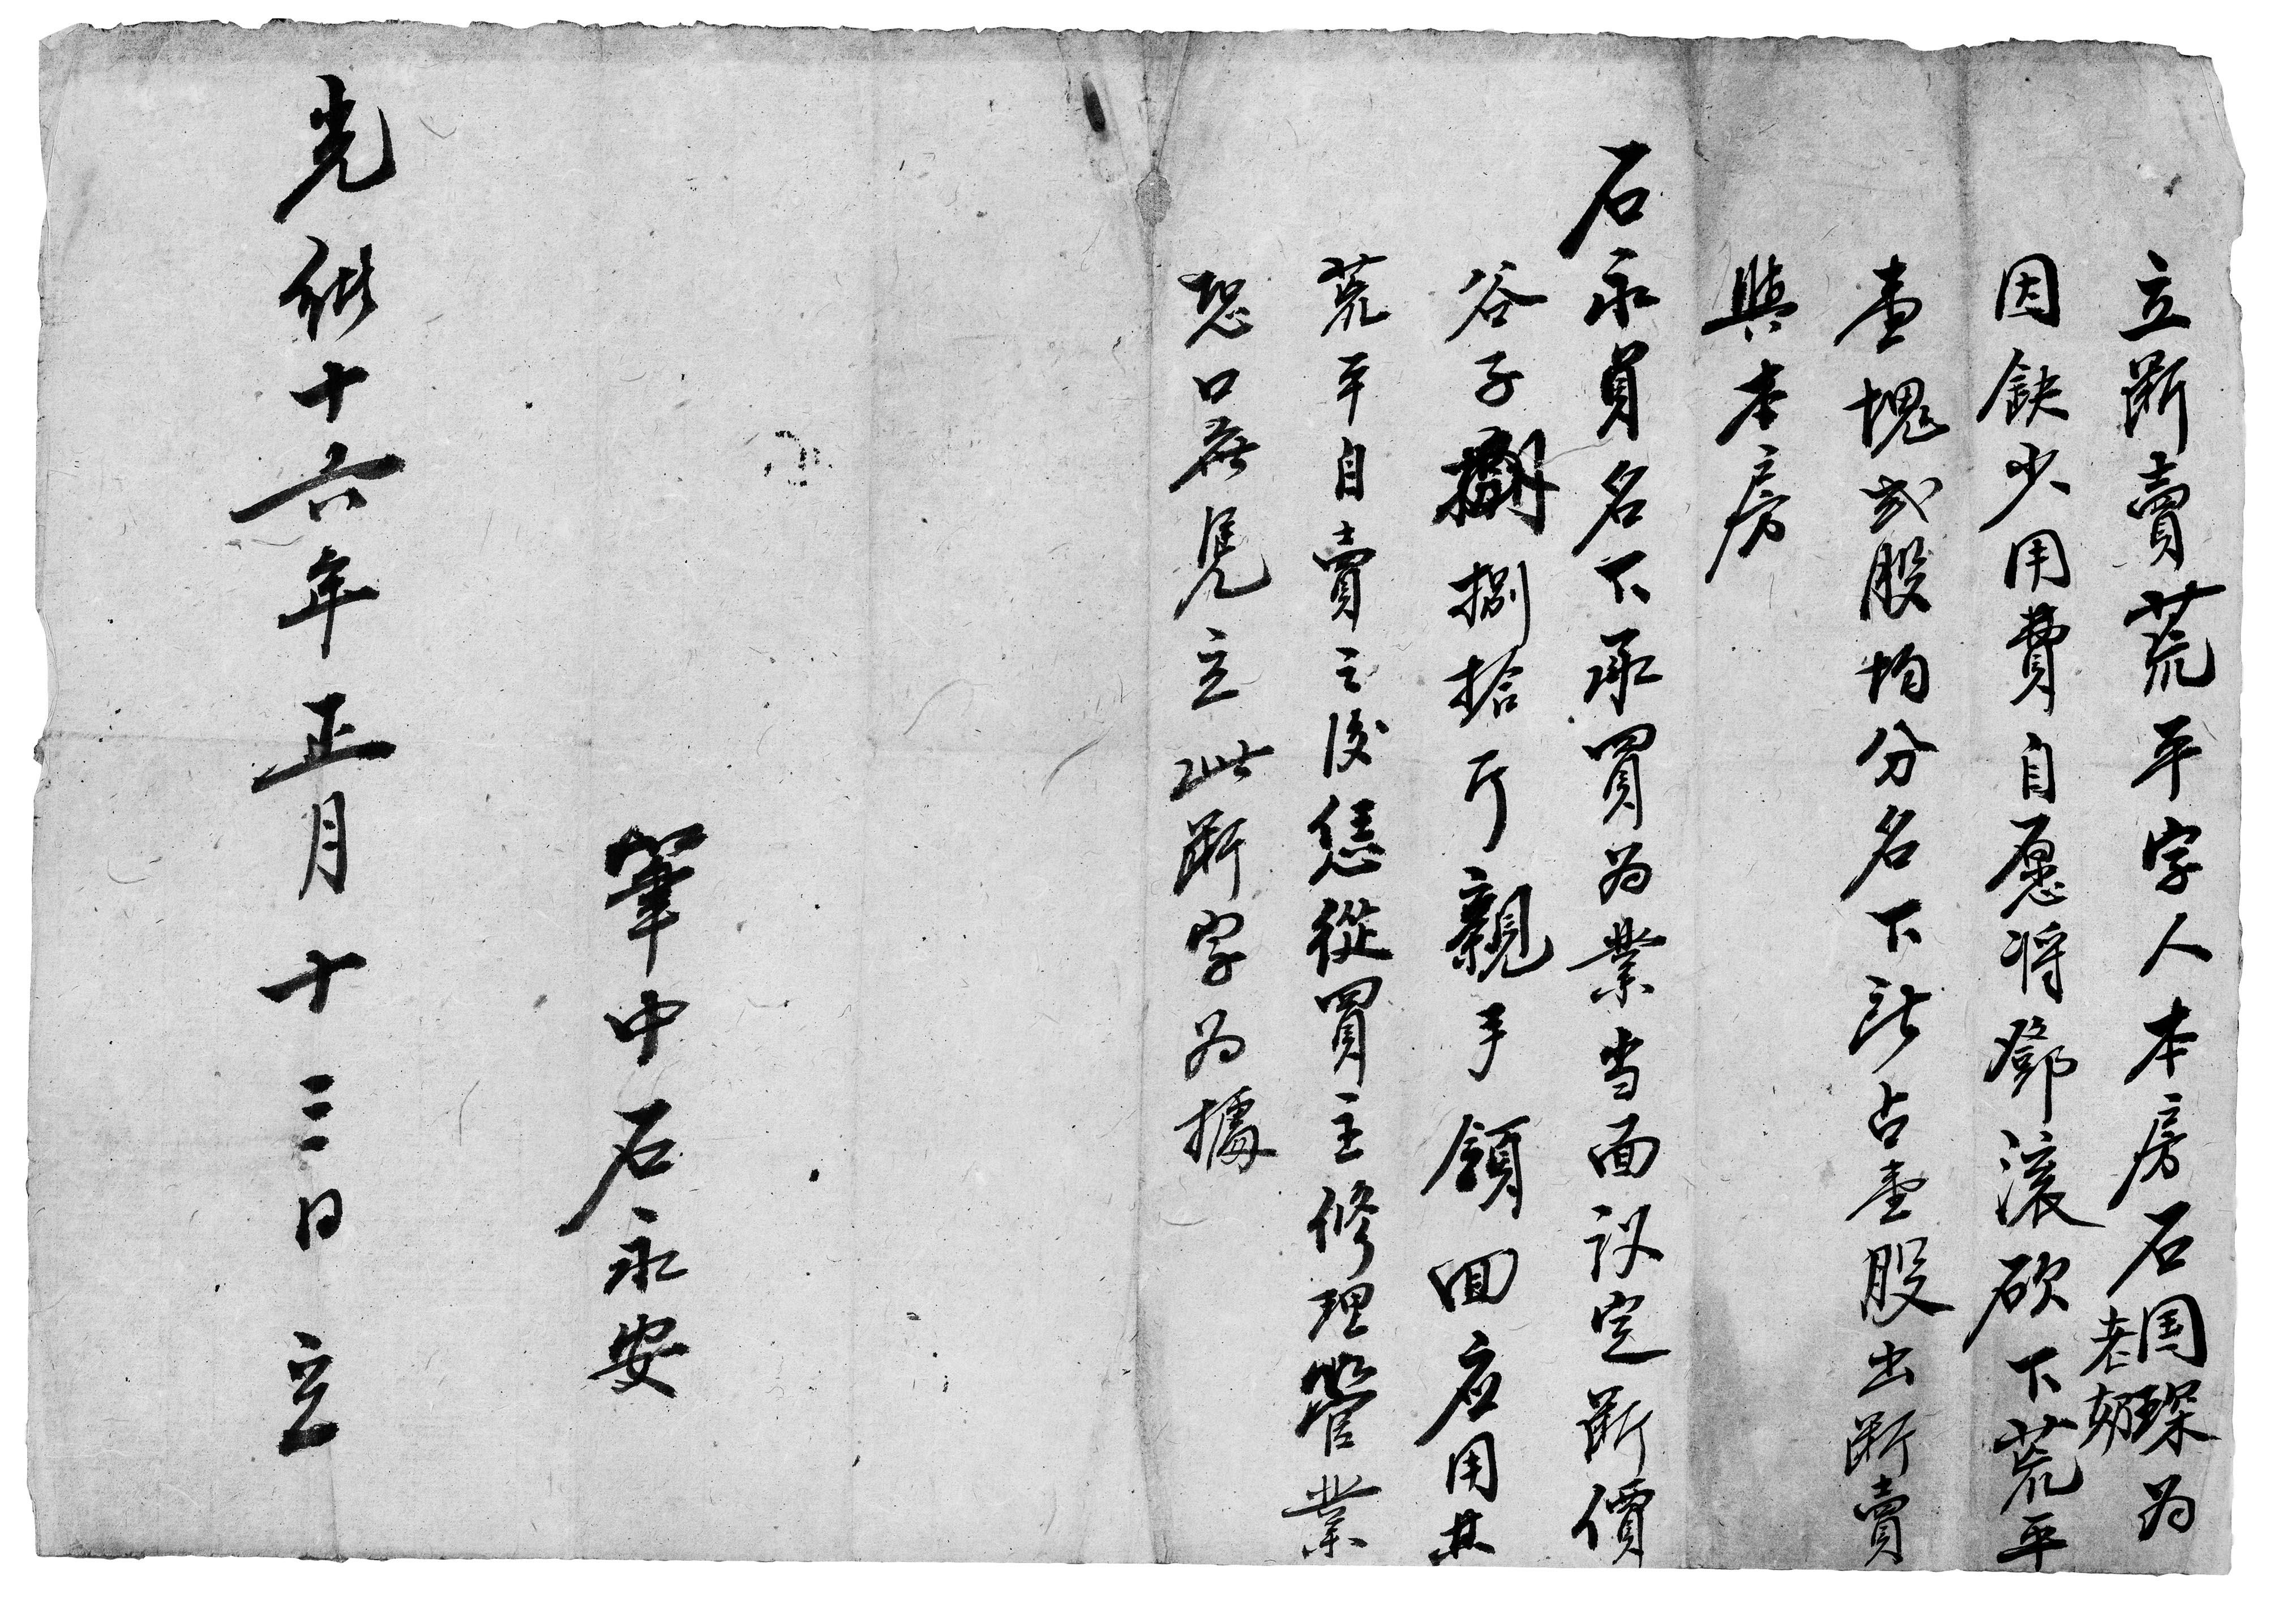 立断賣荒平字人本房石国琛老奶为
因缺少用費自愿将鄧滚砍下荒平
壹塊贰股均分名下所占壹股出断賣
與本房
石永貞名下承買为業当面议定断價
谷子捌拾斤親手領回应用其
荒平自賣之後恁從買主修理管業
恐口無凭立此断字为據
筆中石永安
光绪十六年正月十三日立